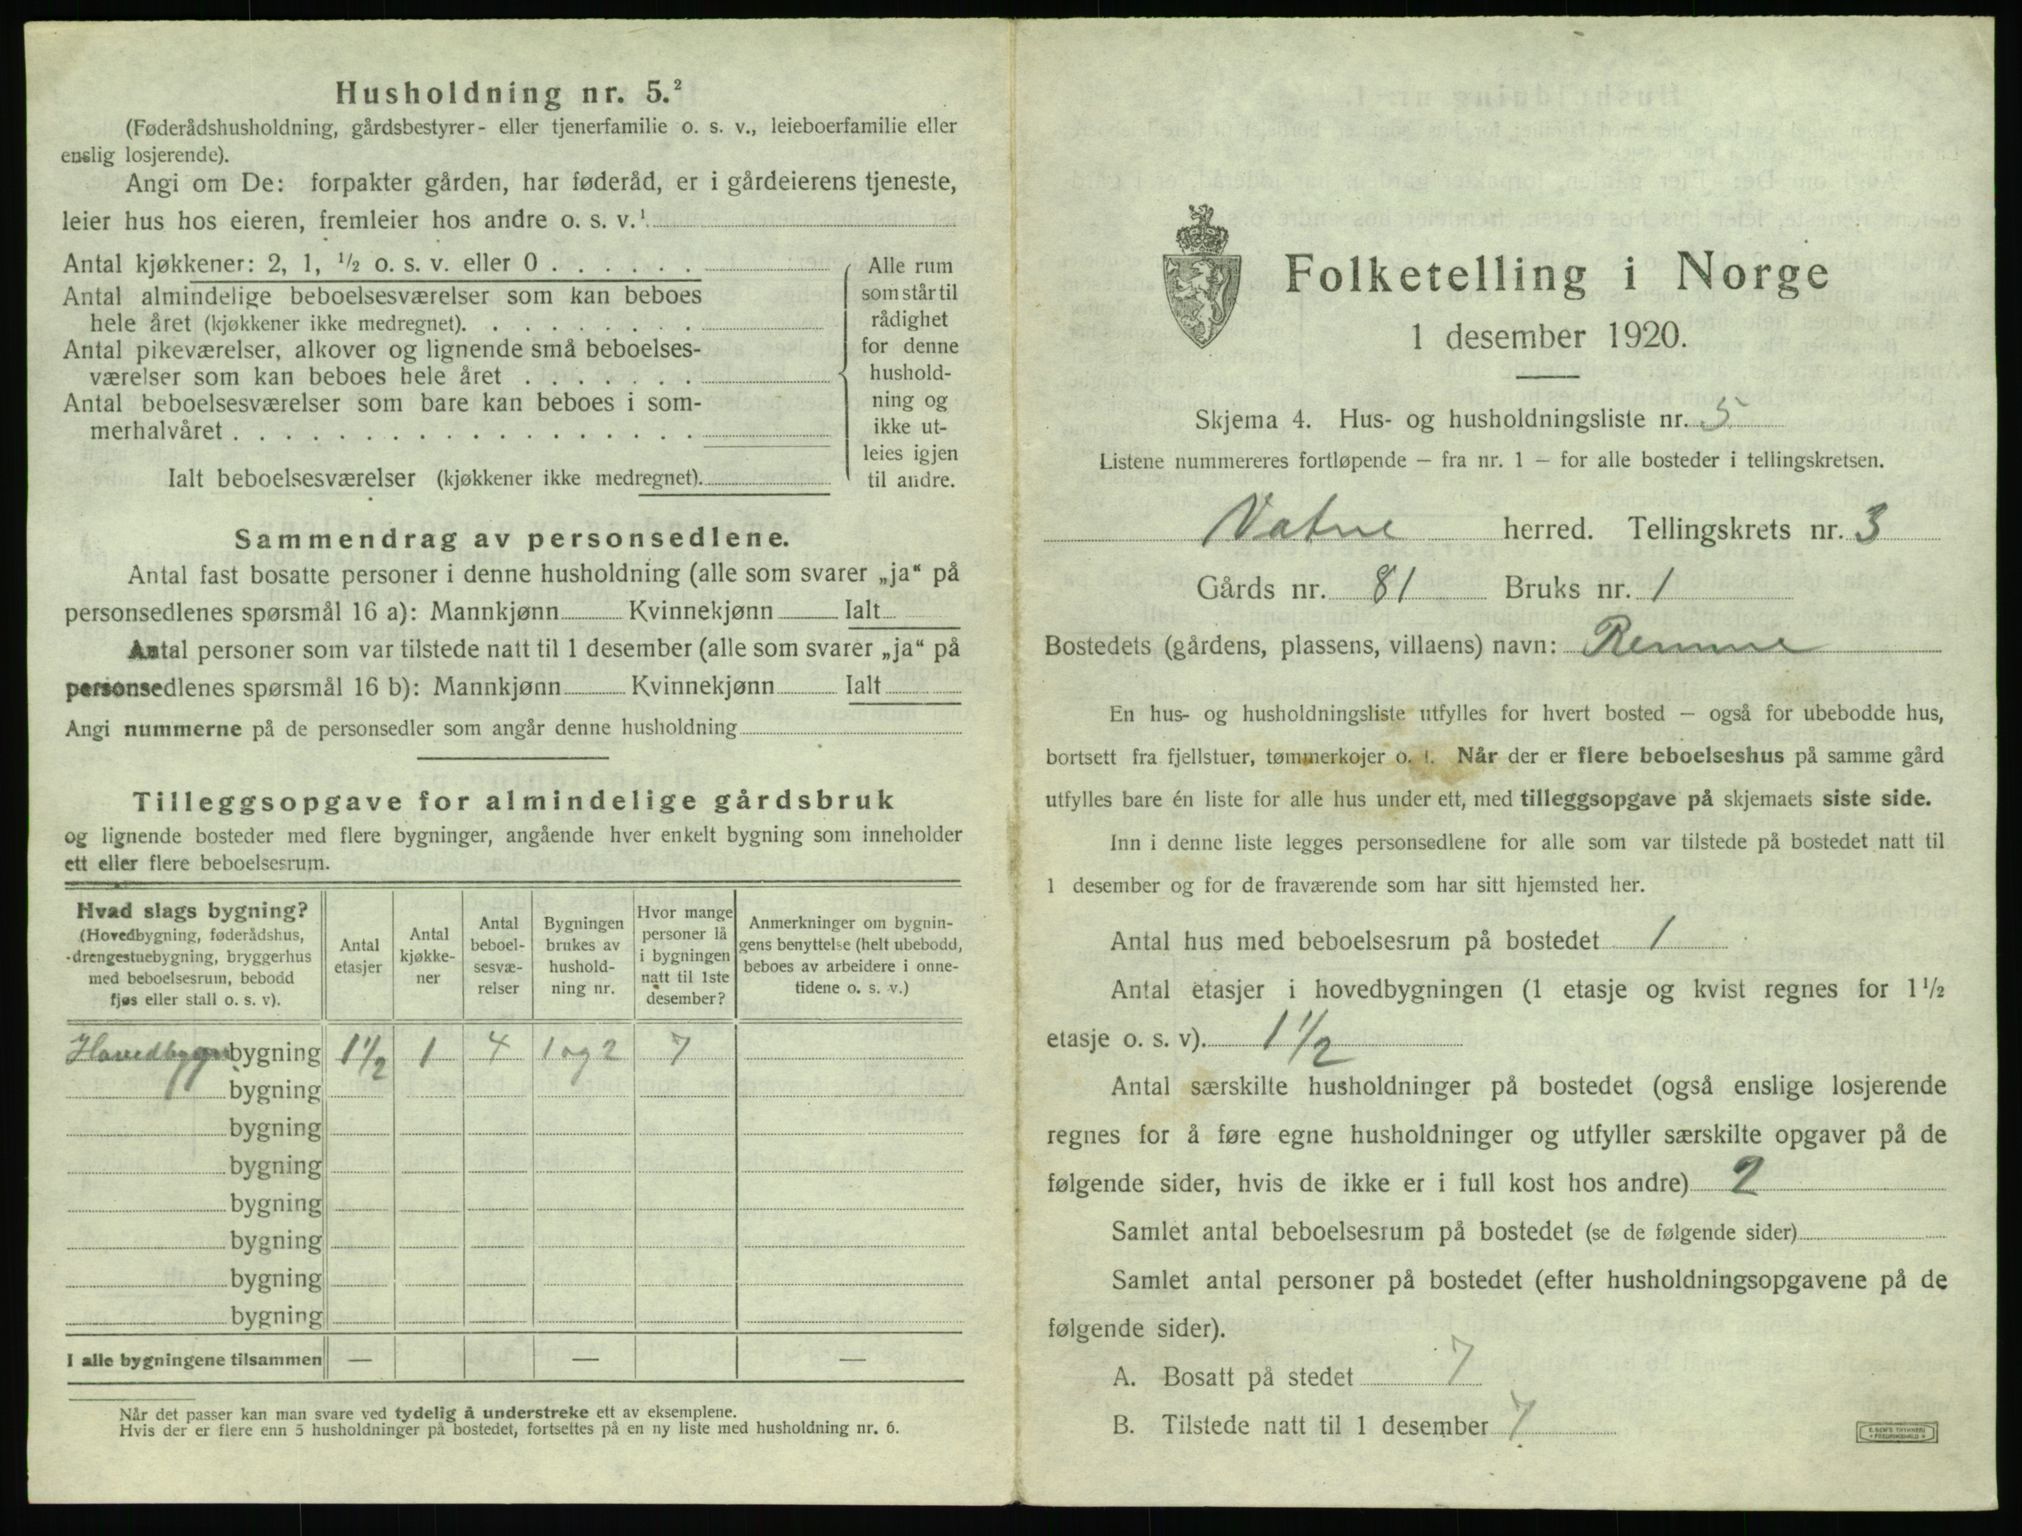 Husholdning nr. 5.²
(Føderådshusholdning, gårdsbestyrer- eller tjenerfamilie o. s. v., leieboerfamilie eller
enslig losjerende).
Angi om De: forpakter gården, har føderåd, er i gårdeierens tjeneste,
leier hus hos eieren, fremleier hos andre o. s. v.¹
Antal kjøkkener: 2, 1, ½ o. s. v. eller 0
Antal almindelige beboelsesværelser som kan beboes
hele året (kjøkkener ikke medregnet).
Antal pikeværelser, alkover og lignende små beboelses-
værelser som kan beboes hele året
Antal beboelsesværelser som bare kan beboes i som-
merhalvåret
Ialt beboelsesværelser (kjøkkener ikke medregnet).
Alle rum
som står til
rådighet
for denne
hushold-
ning og
ikke ut-
leies igjen
til andre.
Sammendrag av personsedlene.
Antal fast bosatte personer i denne husholdning (alle som svarer „ja“ på
personsedlenes spørsmål 16 a): Mannkjønn Kvinnekjønn Ialt
Antal personer som var tilstede natt til 1 desember (alle som svarer „ja“ på
personsedlenes spørsmål 16 b): Mannkjønn Kvinnekjønn Ialt
Angi nummerne på de personsedler som angår denne husholdning
Tilleggsopgave for almindelige gårdsbruk
og lignende bosteder med flere bygninger, angående hver enkelt bygning som inneholder
ett eller flere beboelsesrum.
Hvad slags bygning?
(Hovedbygning, føderådshus,
drengestuebygning, bryggerhus
med beboelsesrum, bebodd
fjøs eller stall o. s. v).
Antal
etasjer
Antal
kjøkke-
ner
Antal
beboel-
sesvæ-
relser
Bygningen
brukes av
hushold-
ning nr.
Hvor mange
personer lå
i bygningen
natt til 1ste
desember?
Anmerkninger om bygnin-
gens benyttelse (helt ubebodd,
beboes av arbeidere i onne-
tidene o. s. v.)
Hovedbygn bygning 1½ 1 4 1 og 2 7
bygning
bygning
bygning
bygning
bygning
bygning
bygning
I alle bygningene tilsammen — — —
Når det passer kan man svare ved tydelig å understreke ett av eksemplene.
Hvis der er flere enn 5 husholdninger på bostedet, fortsettes på en ny liste med husholdning nr. 6.
Folketelling i Norge
1 desember 1920.
Skjema 4. Hus- og husholdningsliste nr. 5
Listene nummereres fortløpende — fra nr. 1 — for alle bosteder i tellingskretsen.
Vatne herred. Tellingskrets nr. 3
Gårds nr. 81 Bruks nr. 1
Bostedets (gårdens, plassens, villaens) navn: Remme
En hus- og husholdningsliste utfylles for hvert bosted — også for ubebodde hus,
bortsett fra fjellstuer, tømmerkojer o. l. Når der er flere beboelseshus på samme gård
utfylles bare én liste for alle hus under ett, med tilleggsopgave på skjemaets siste side.
Inn i denne liste legges personsedlene for alle som var tilstede på bostedet natt til
1 desember og for de fraværende som har sitt hjemsted her.
Antal hus med beboelsesrum på bostedet 1
Antal etasjer i hovedbygningen (1 etasje og kvist regnes for 1½
etasje o. s. v). 1½
Antal særskilte husholdninger på bostedet (også enslige losjerende
regnes for å føre egne husholdninger og utfyller særskilte opgaver på de
følgende sider, hvis de ikke er i full kost hos andre) 2
Samlet antal beboelsesrum på bostedet (se de følgende sider)
Samlet antal personer på bostedet (efter husholdningsopgavene på de
følgende sider).
A. Bosatt på stedet 7
B. Tilstede natt til 1 desember 7